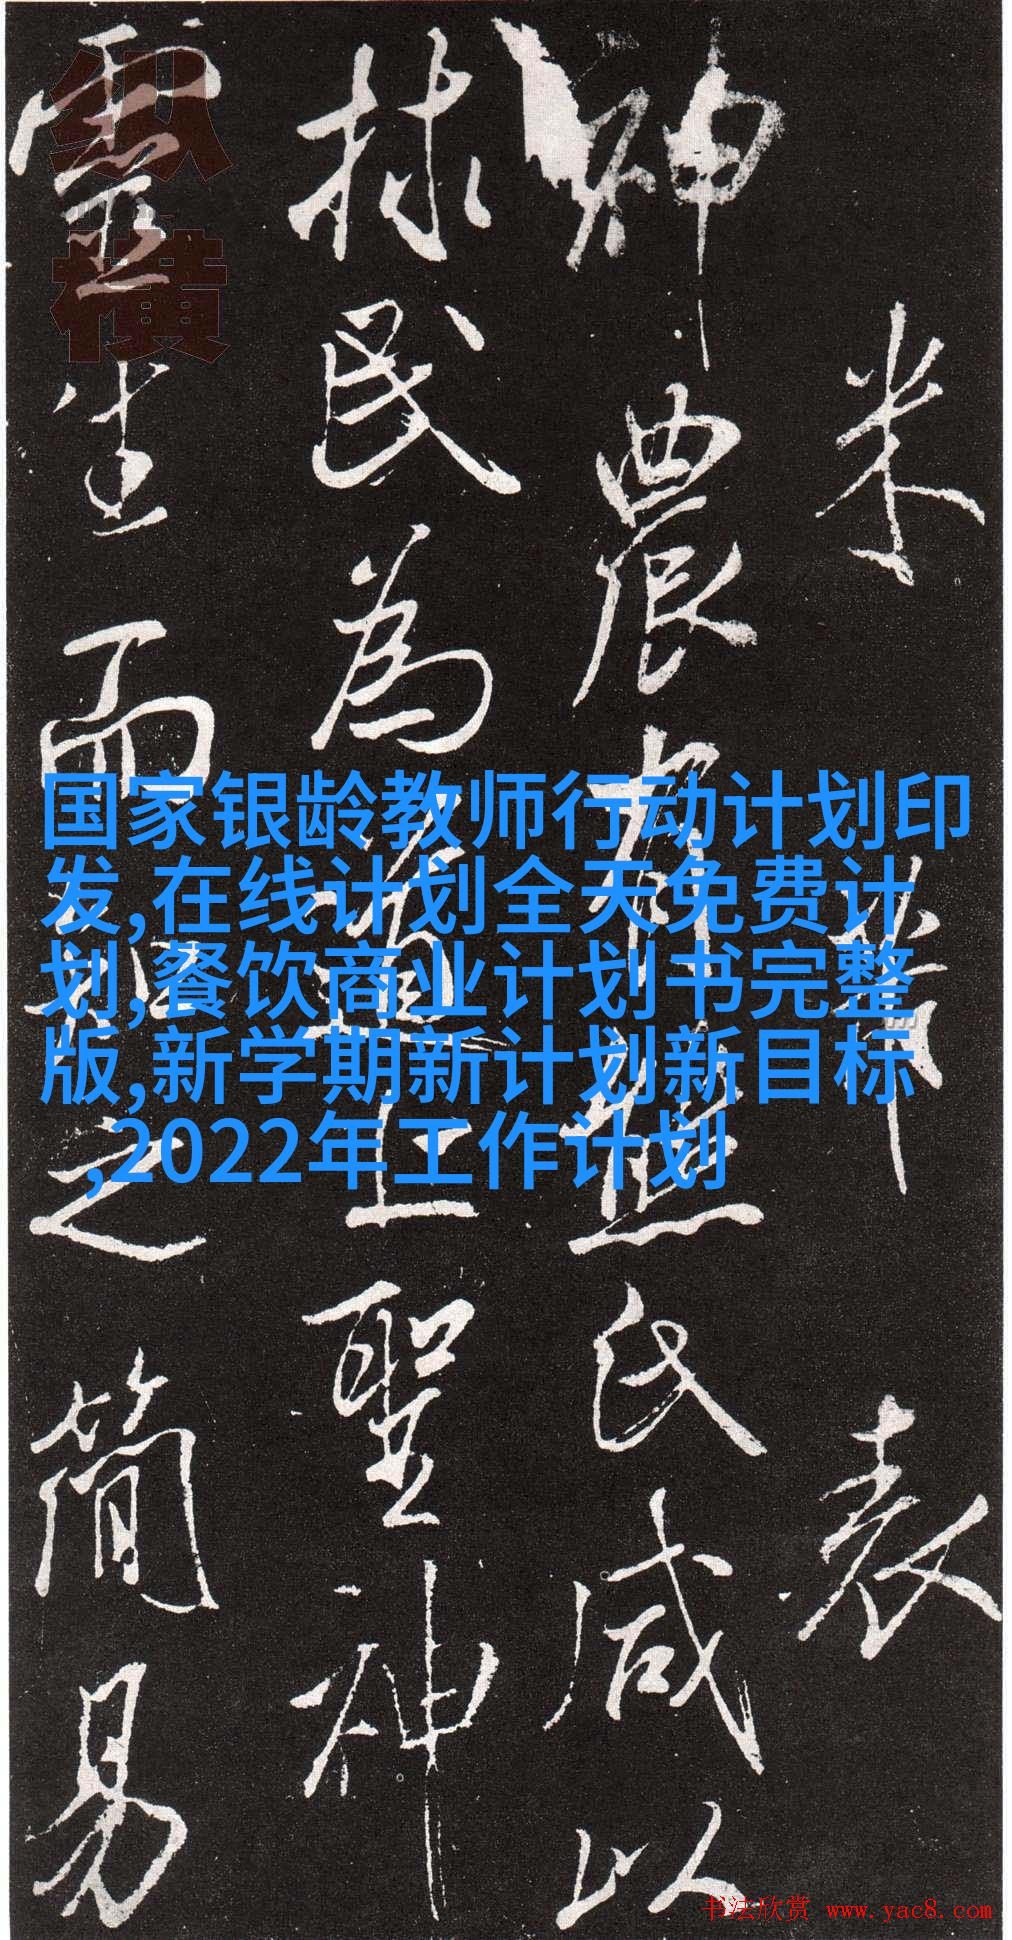 米芾 表
神农有熊氏咸以
救民为道上聖神
靈生而知之简易
纵横
国家银龄教师行动计划印
发,在线计划全天免费计
划,餐饮商业计划书完整
版,新学期新计划新目标
,2022年工作计划
书法欣赏 www.yac8.com